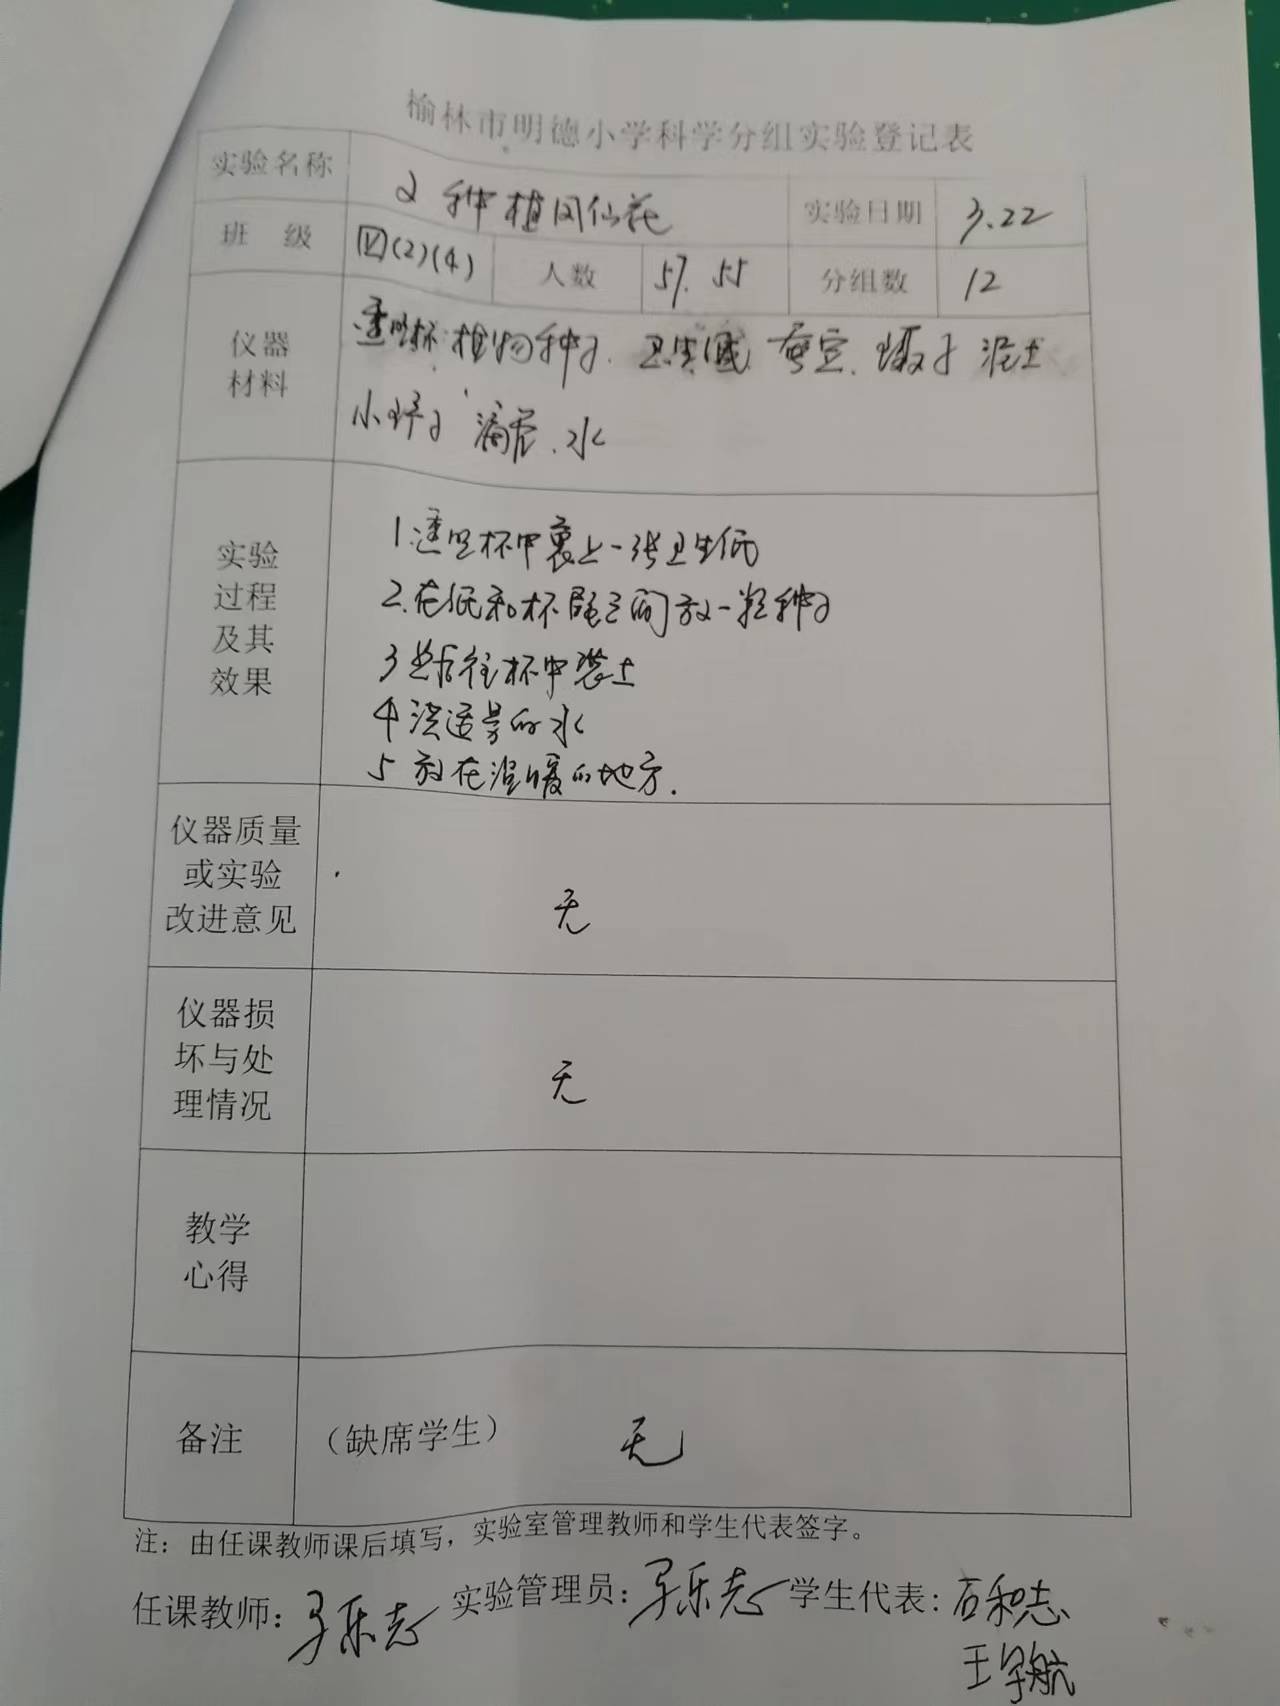 榆林市明德小学科学分组实验登记表
实验名称 2 种植凤仙花 实验日期 3.22
班 级 四(2)(4) 人数 57. 55 分组数 12
仪器材料 透明杯 植物种子. 卫生纸 镊子 泥土
小铲子 滴管、水
实验过程及其效果
1.透明杯中裹上一张卫生纸
2.在纸和杯壁之间放一粒种子
3 然后往杯中装土
4 浇适量的水
5 放在温暖的地方.
仪器质量或实验改进意见 无
仪器损坏与处理情况 无
教学心得
备注 （缺席学生） 无
注：由任课教师课后填写，实验室管理教师和学生代表签字。
任课教师: 乐志 实验管理员: 乐志 学生代表: 石和志
王宇航